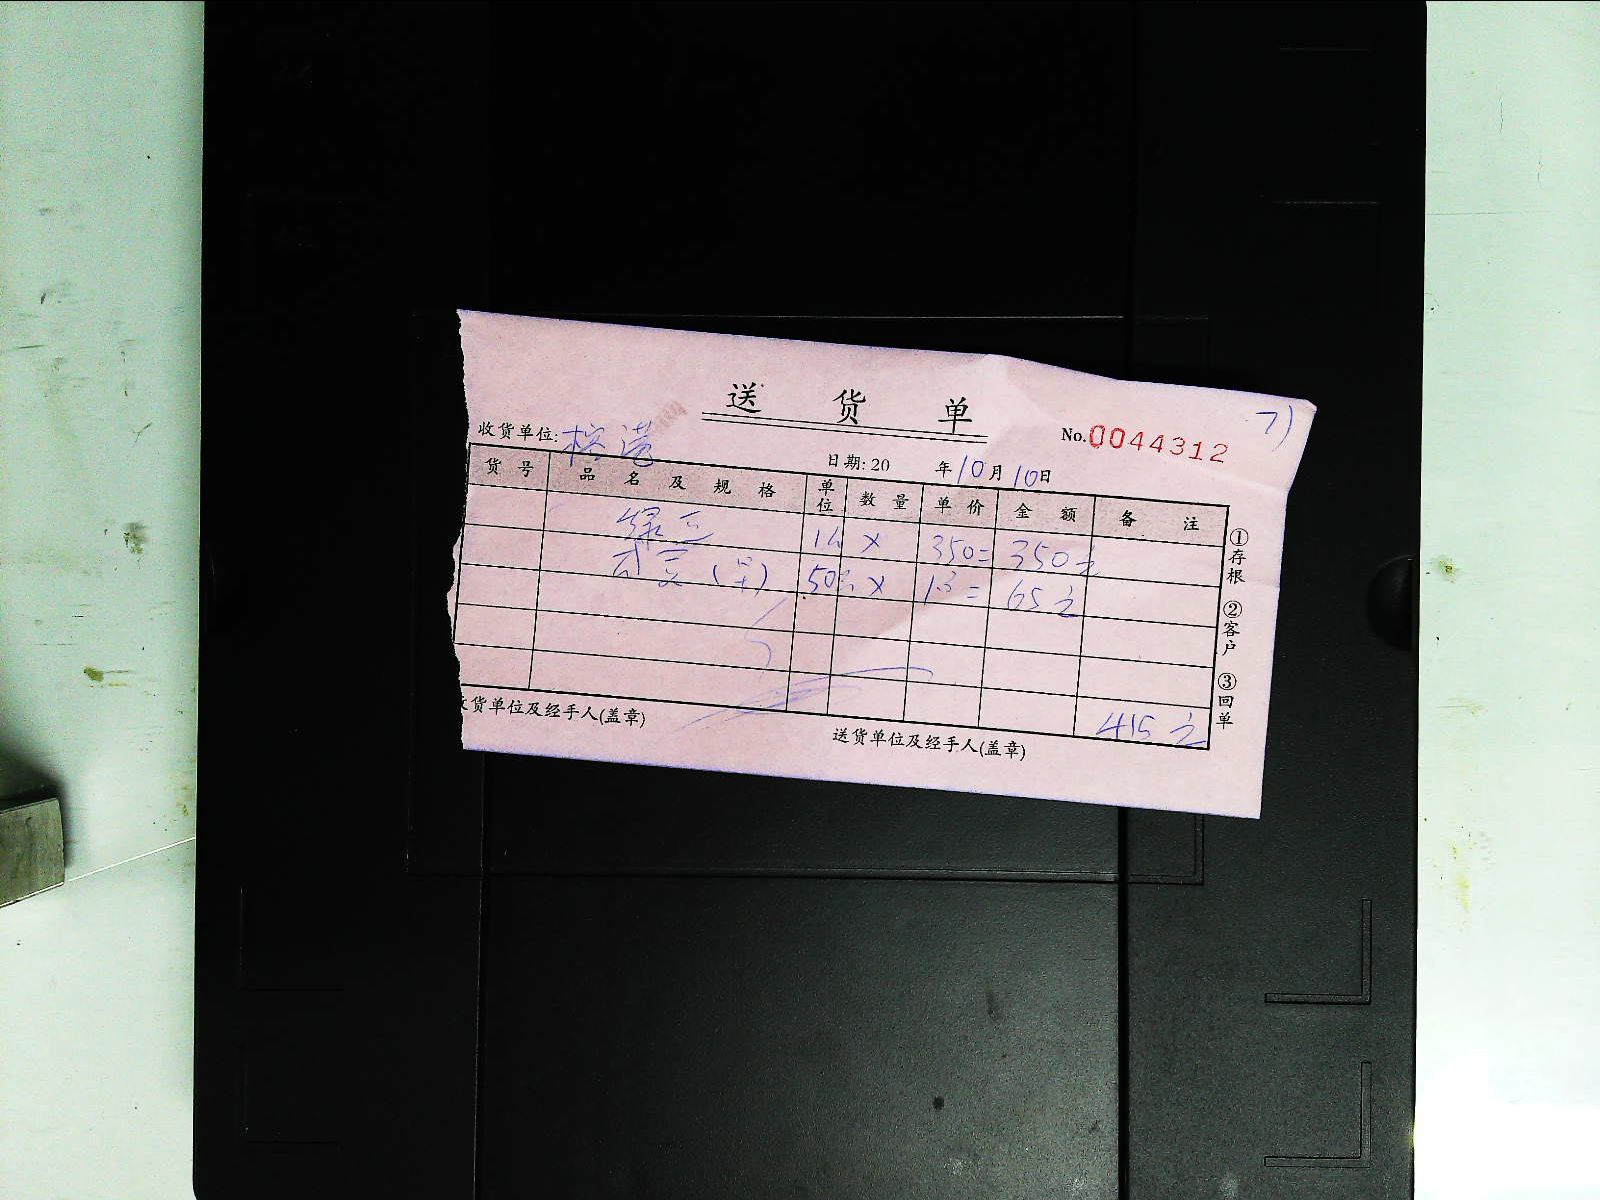 7)
送 货 单
收货单位: 榕港
No.0044312
日期: 20 年 10 月 10 日
货号 品名及规格 单位 数量 单价 金额 备注
绿豆 1件 × 350= 350元
(早) 50 × 1.3= 65元
415元
收货单位及经手人(盖章) 送货单位及经手人(盖章)
①存根 ②客户 ③回单